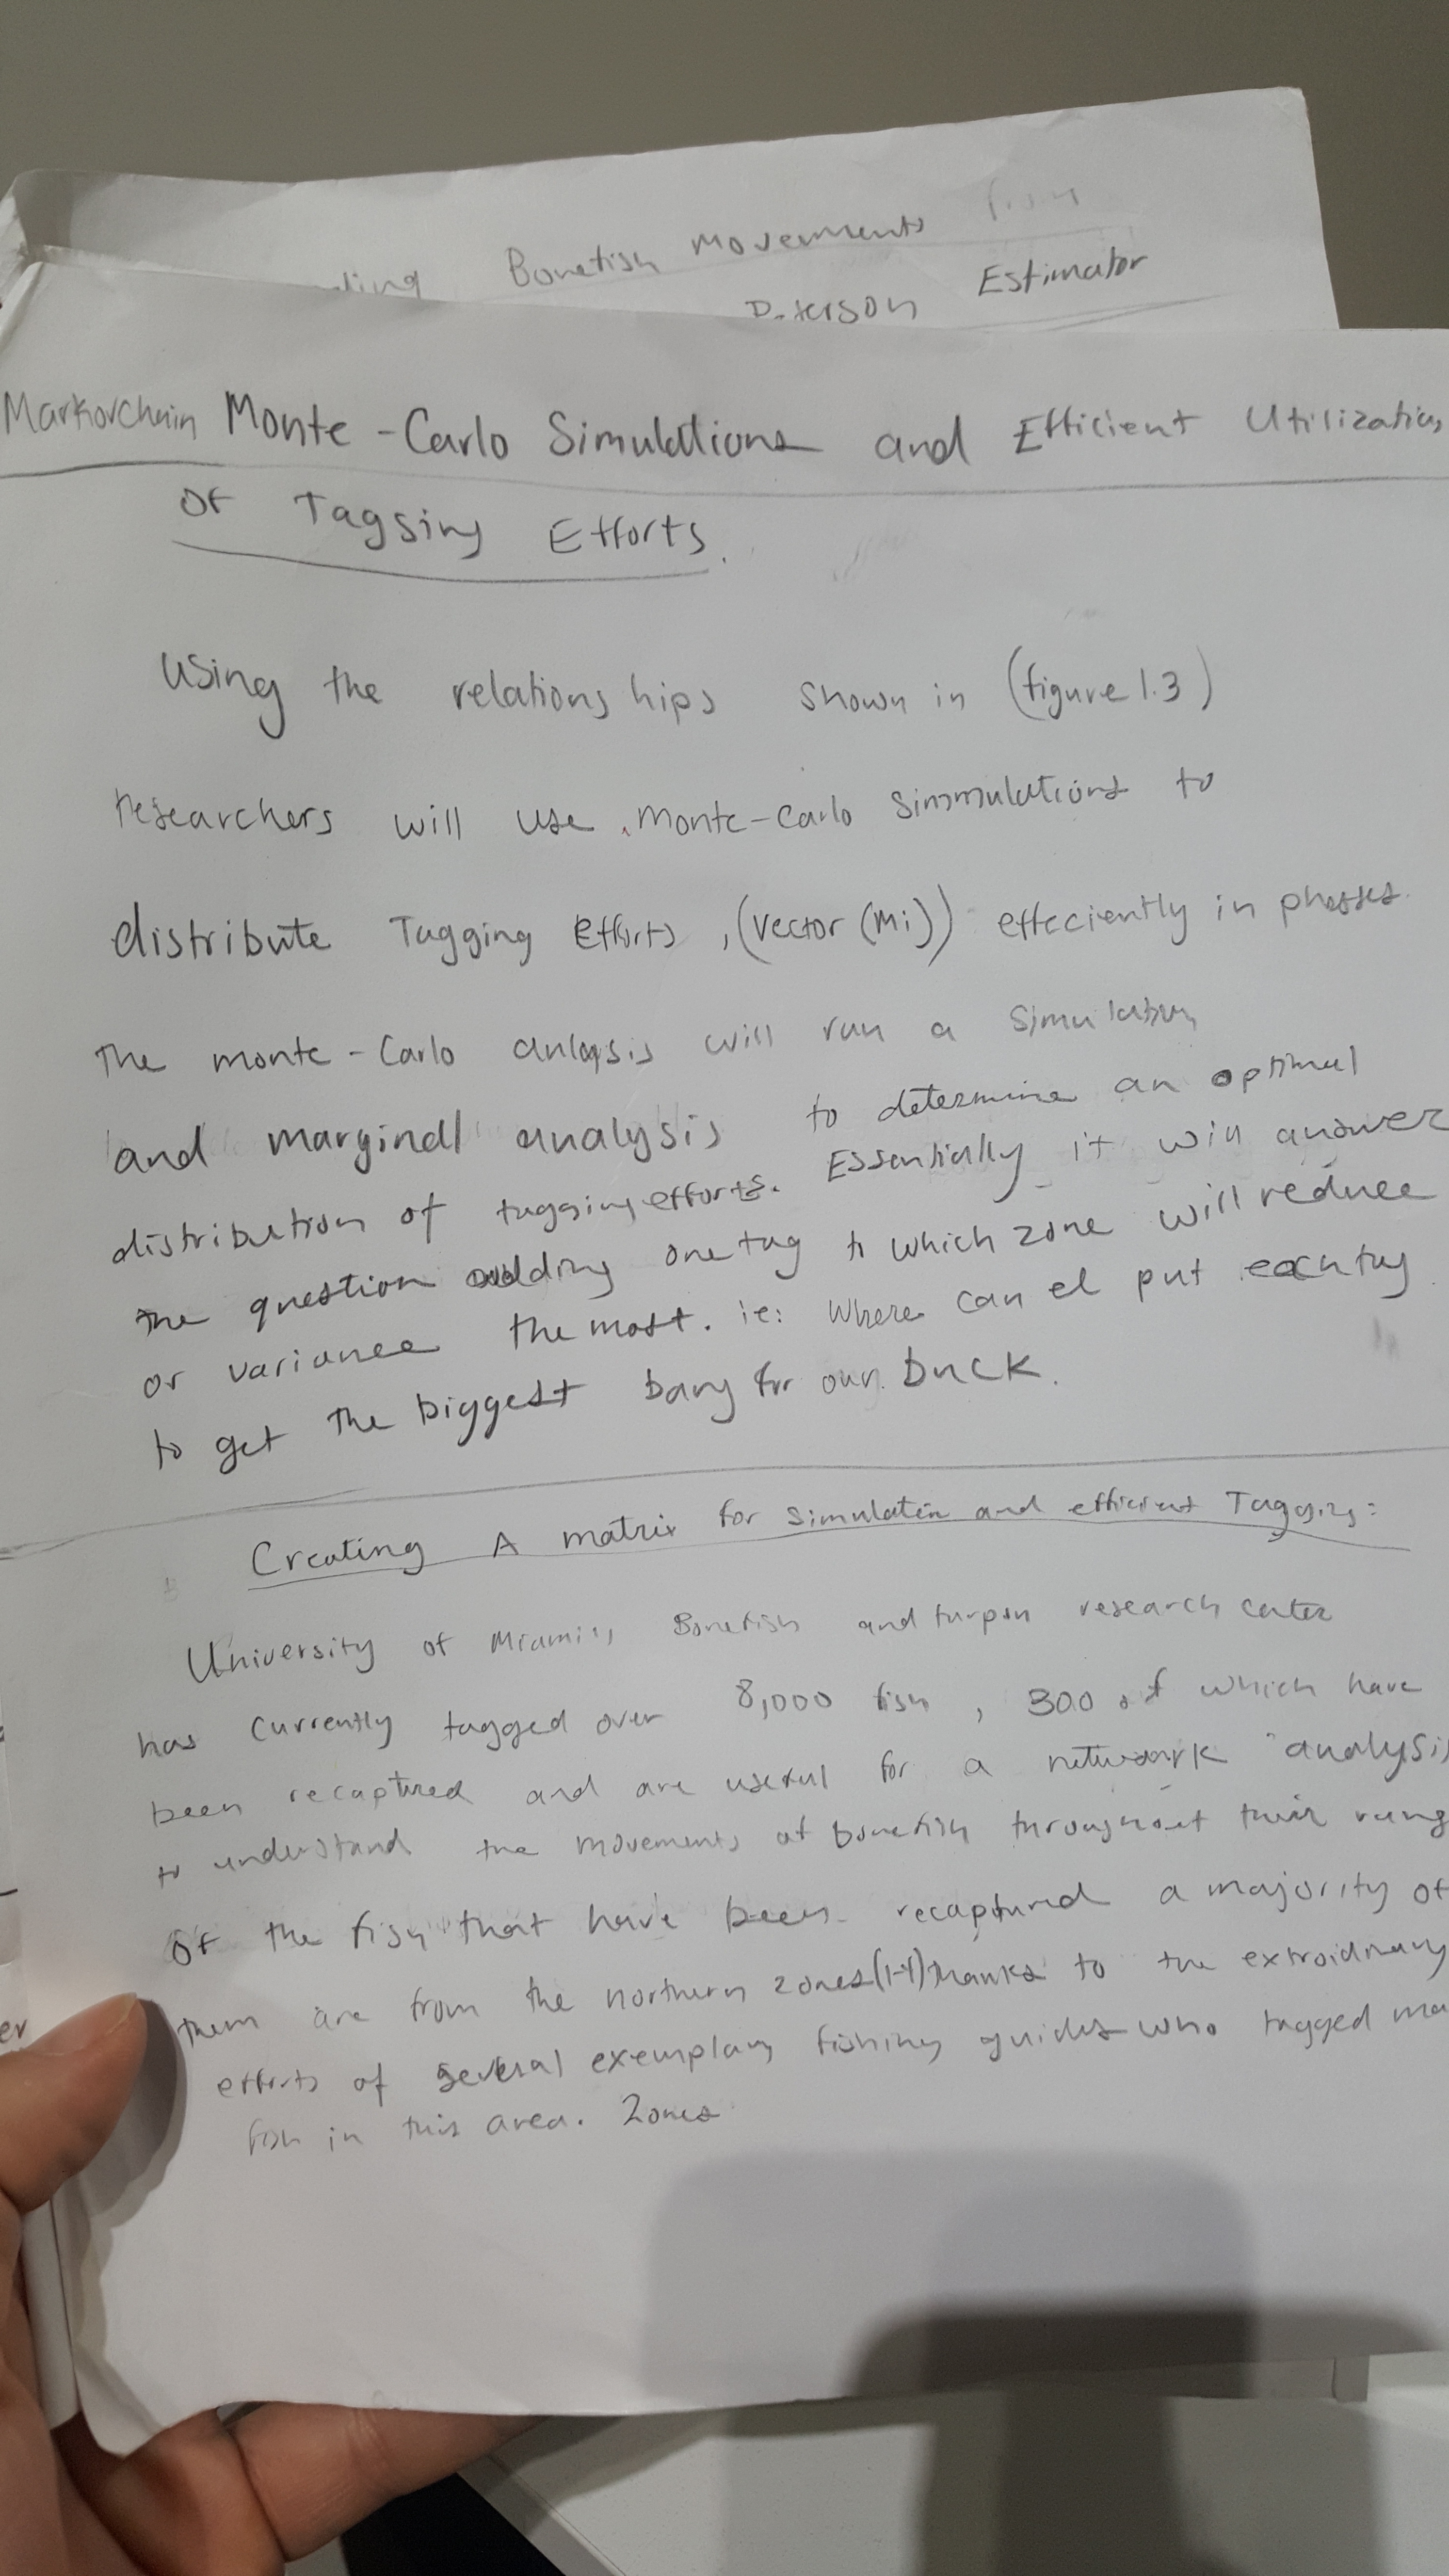 Bonefish Movements
Estimator
Markovchain Monte-Carlo Simulations and Efficient Utilization
Of Tagging Efforts.
Using the relationships shown in (figure 1.3)
researchers will use monte-carlo simmulations to
distribute Tagging Efforts, (vector (Mi)) effeciently in phases.
The monte-Carlo anlaysis will run a simulation
and marginal analysis to determine an optimal
distribution of tagging efforts. Essentially it will answer
the question adding one tag to which zone will reduce
or variance the most. ie: Where can put each tag
to get the biggest bang for our buck.
Creating A matrix for simulation and efficient Tagging:
University of Miami's, Bonefish and tarpon research center
has currently tagged over 8,000 fish, 300 of which have
been recaptured and are useful for a network analysis
to understand the movements of bonefish throughout their rang
Of the fish that have been recaptured a majority of
them are from the northern zones(1-4) thanks to the extroidinary
efforts of several exemplary fishing guides who tagged ma
fish in this area. Zones